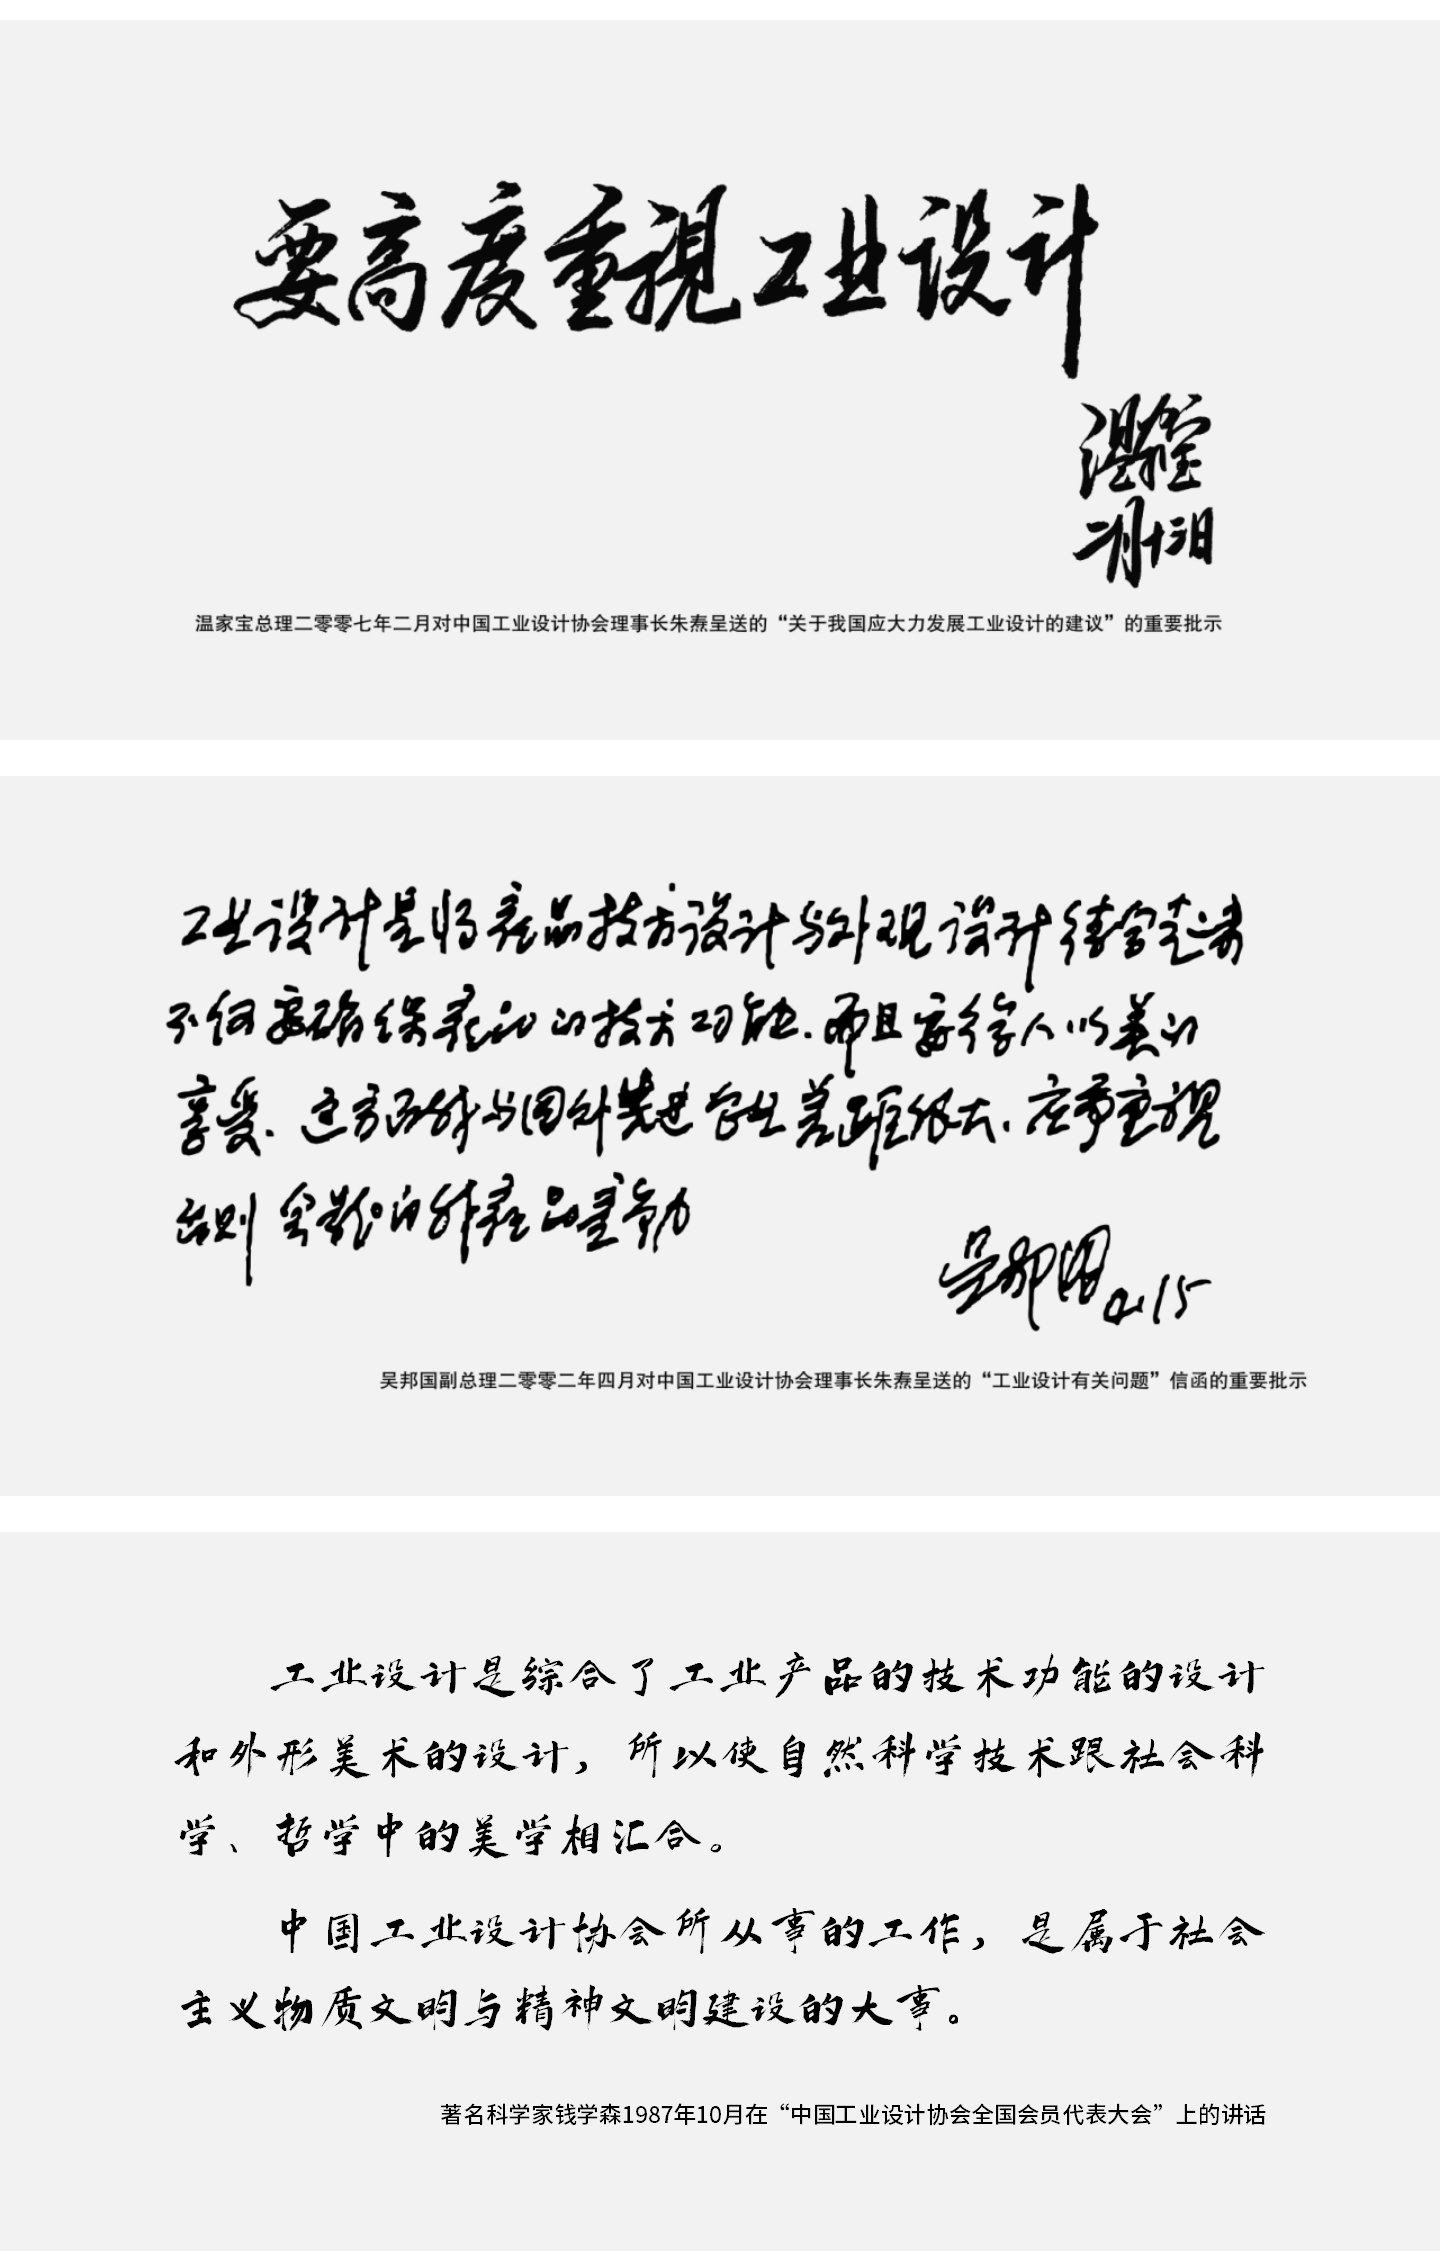 要高度重视工业设计
温家宝
二月十三日
温家宝总理二零零七年二月对中国工业设计协会理事长朱焘呈送的“关于我国应大力发展工业设计的建议”的重要批示
工业设计是将产品技术设计与外观设计结合起来
不仅要确保产品的技术功能.而且要给人以美的
享受.这方面我与国外先进企业差距很大.应予重视
否则会影响我产品竞争力
吴邦国 4.15
吴邦国副总理二零零二年四月对中国工业设计协会理事长朱焘呈送的“工业设计有关问题”信函的重要批示
工业设计是综合了工业产品的技术功能的设计
和外形美术的设计，所以使自然科学技术跟社会科
学、哲学中的美学相汇合。
中国工业设计协会所从事的工作，是属于社会
主义物质文明与精神文明建设的大事。
著名科学家钱学森1987年10月在“中国工业设计协会全国会员代表大会”上的讲话